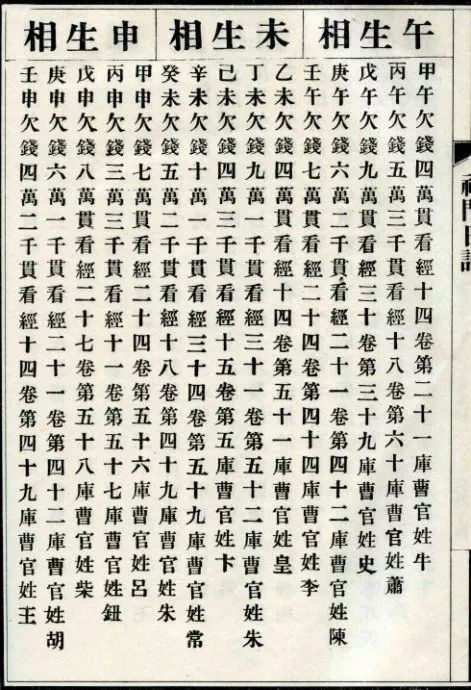 午生相
甲午欠錢四萬貫看經十四卷第二十一庫曹官姓牛
丙午欠錢五萬三千貫看經十八卷第六十庫曹官姓蕭
戊午欠錢九萬貫看經三十卷第三十九庫曹官姓史
庚午欠錢六萬二千貫看經二十一卷第四十二庫曹官姓陳
壬午欠錢七萬貫看經二十四卷第四十四庫曹官姓李
未生相
乙未欠錢四萬貫看經十四卷第五十一庫曹官姓皇
丁未欠錢九萬一千貫看經三十一卷第五十二庫曹官姓朱
己未欠錢四萬三千貫看經十五卷第五庫曹官姓卞
辛未欠錢十萬一千貫看經三十四卷第五十九庫曹官姓常
癸未欠錢五萬二千貫看經十八卷第四十九庫曹官姓朱
申生相
甲申欠錢七萬貫看經二十四卷第五十六庫曹官姓呂
丙申欠錢三萬三千貫看經十一卷第五十七庫曹官姓鈕
戊申欠錢八萬貫看經二十七卷第五十八庫曹官姓柴
庚申欠錢六萬一千貫看經二十一卷第四十二庫曹官姓胡
壬申欠錢四萬二千貫看經十四卷第四十九庫曹官姓王